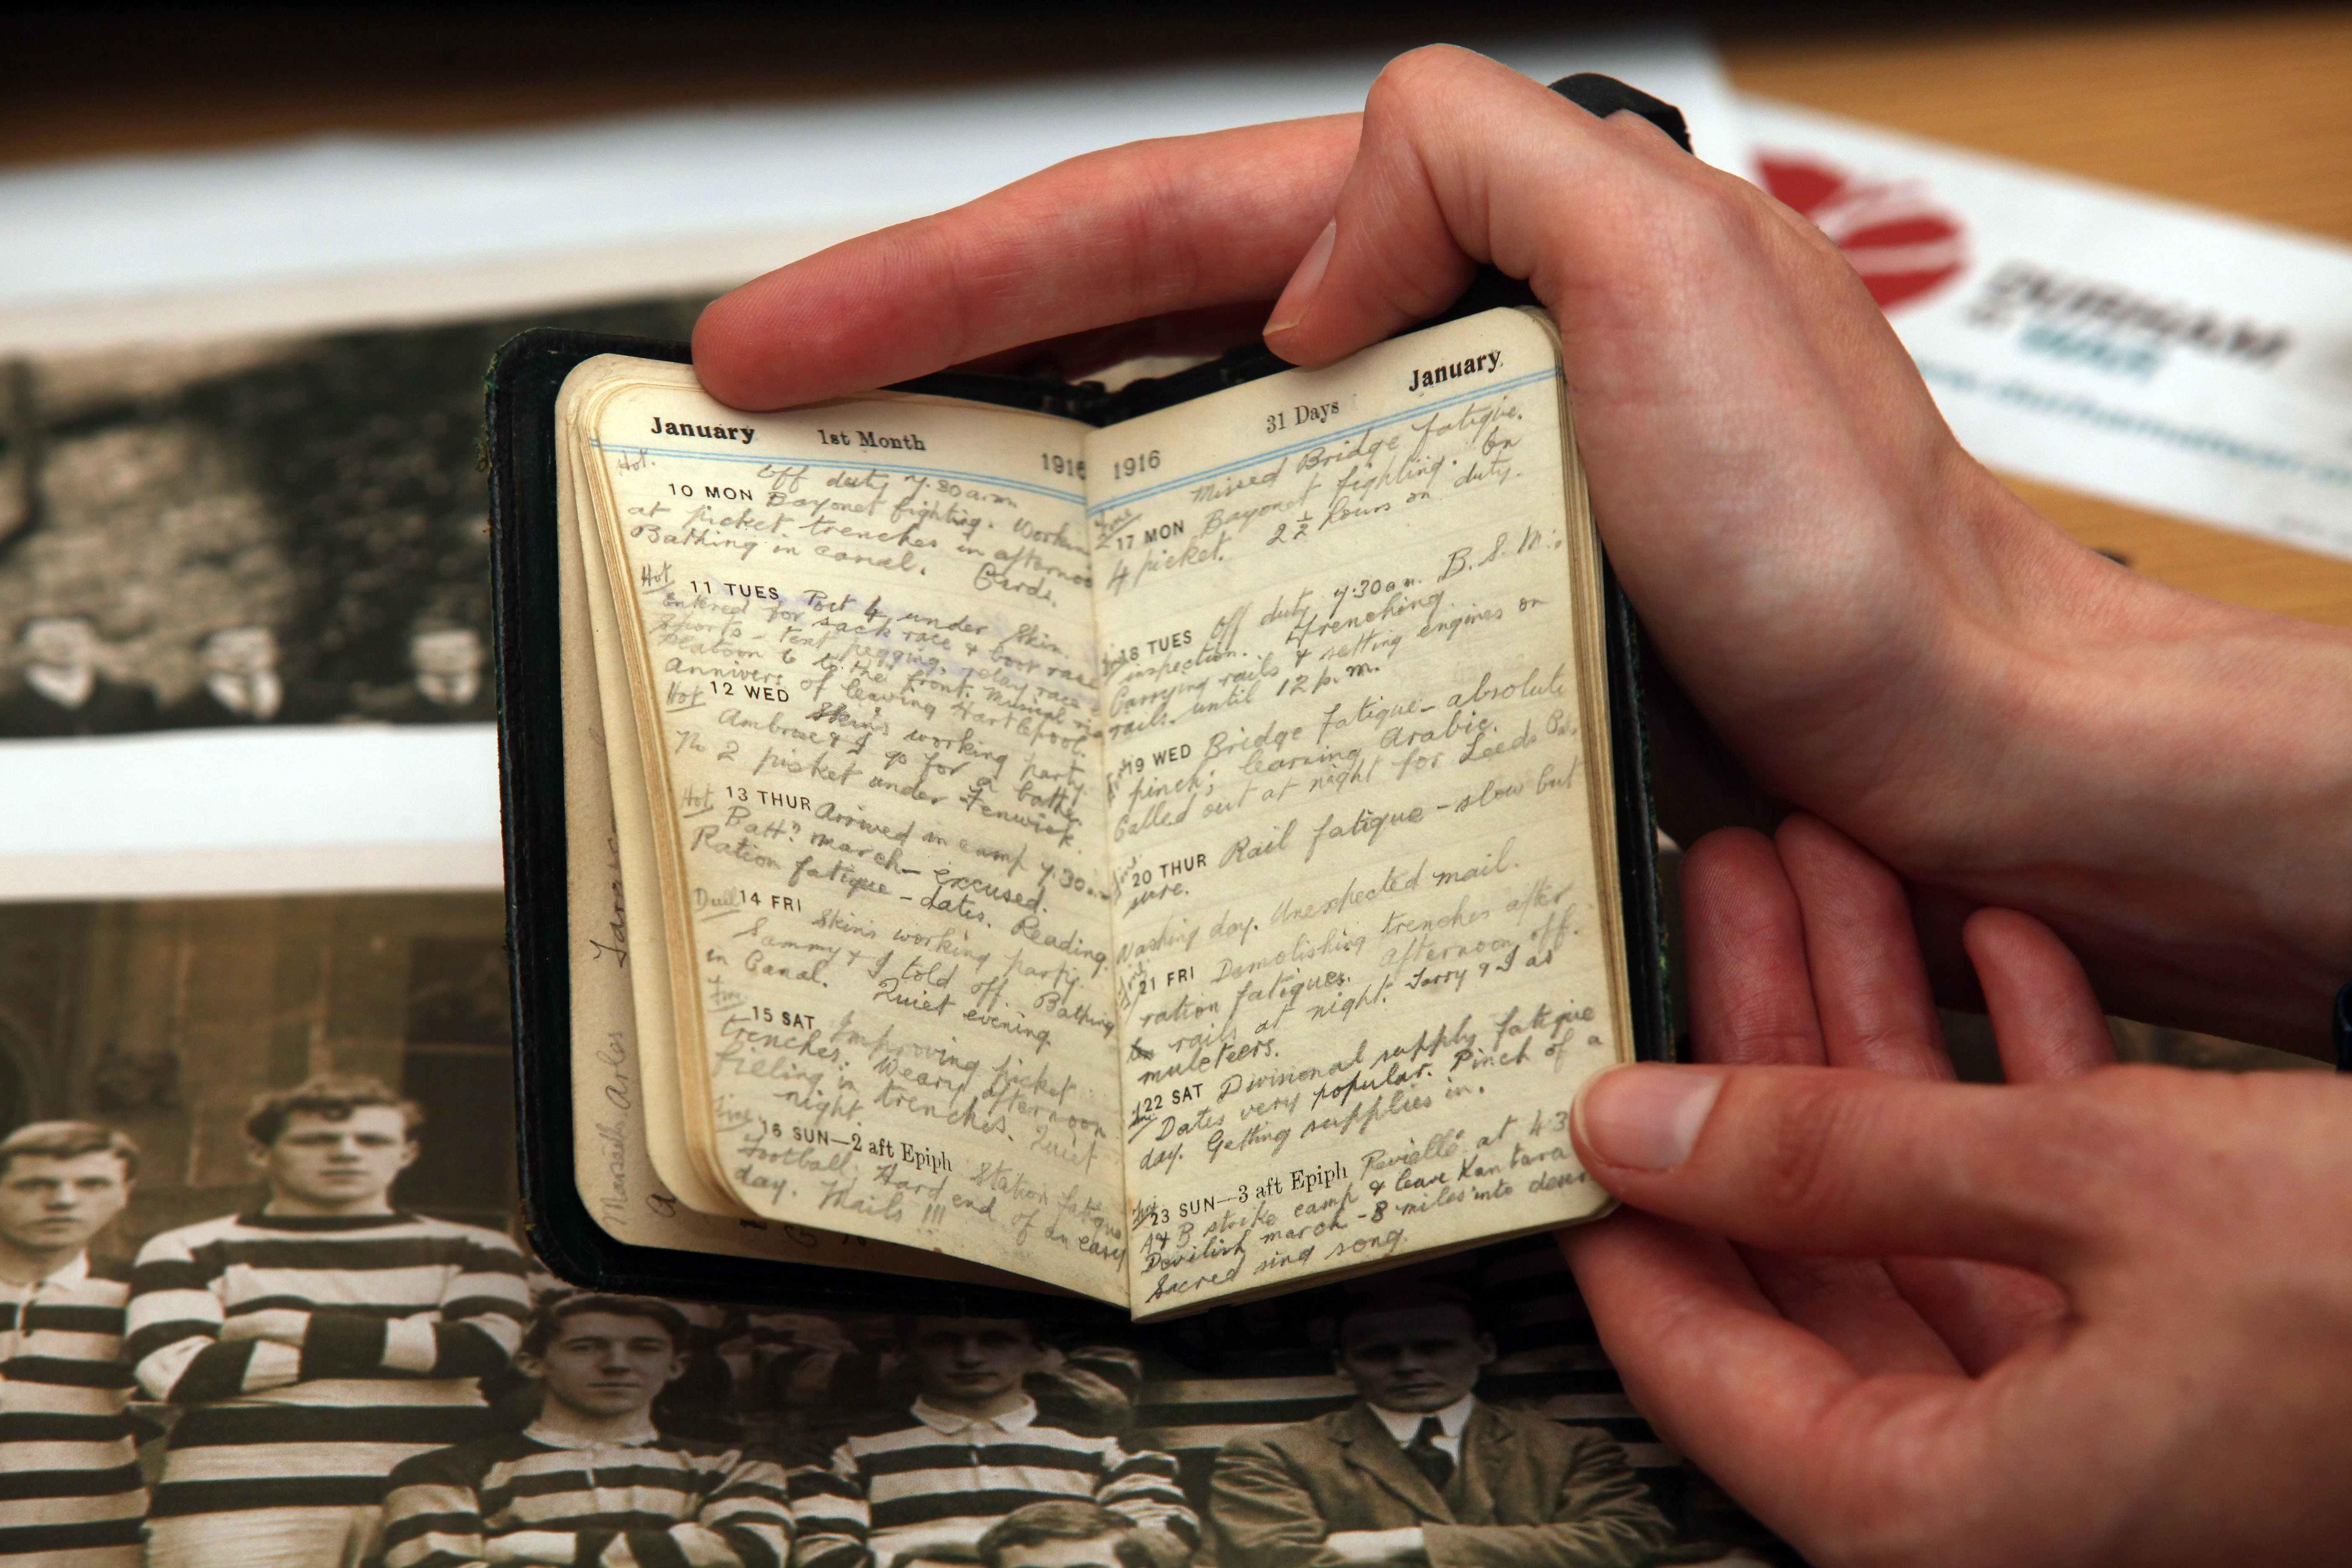 January 1st Month 1916
Hot. Off duty 7.30 a.m.
10 MON Bayonet fighting. Workin
at picket trenches in afternoo
Bathing in canal. Cards.
Hot
11 TUES Post 4, under Skin.
Entered for sack race & boat race
sports - tent pegging, relay race
Platoon 6 to the front. Musical
Annivers. of leaving Hartlepool.
Hot 12 WED Skin's working party.
Ambrose & I go for a bathe.
No 2 picket under Fenwick.
Hot 13 THUR Arrived in camp 7.30
Battn. march - excused.
Ration fatigue - dates. Reading.
Dull 14 FRI Skin's working party.
Sammy & I told off. Bathing
in Canal. Quiet evening.
Fine
15 SAT Improving picket
trenches. Weary afternoon
filling in trenches. Quiet
night.
Fine 16 SUN—2 aft Epiph Station fatigue
Football; Hard end of an easy
day. Mails !!!
1916 31 Days January
Missed Bridge fatigue.
Fine 17 MON Bayonet fighting. On
4 picket. 2½ hours on duty.
18 TUES Off duty 7.30 a.m. B. S. M's
inspection. Trenching
Carrying rails & setting engines on
rails until 12 p.m.
19 WED Bridge fatigue - absolute
pinch; learning Arabic.
Called out at night for Leeds
20 THUR Rail fatigue - slow but
sure.
Washing day. Unexpected mail.
21 FRI Demolishing trenches after
ration fatigues. Afternoon off.
rails at night. Torry & I as
muleteers.
22 SAT Divisional supply fatigue
Dates very popular. Pinch of a
day. Getting supplies in.
23 SUN—3 aft Epiph Reviellé at 4.3
A & B strike camp & leave Kantara
Devilish march - 8 miles into deser
Sacred sing song.
Marseilles Arles
DURHAM
AT WAR